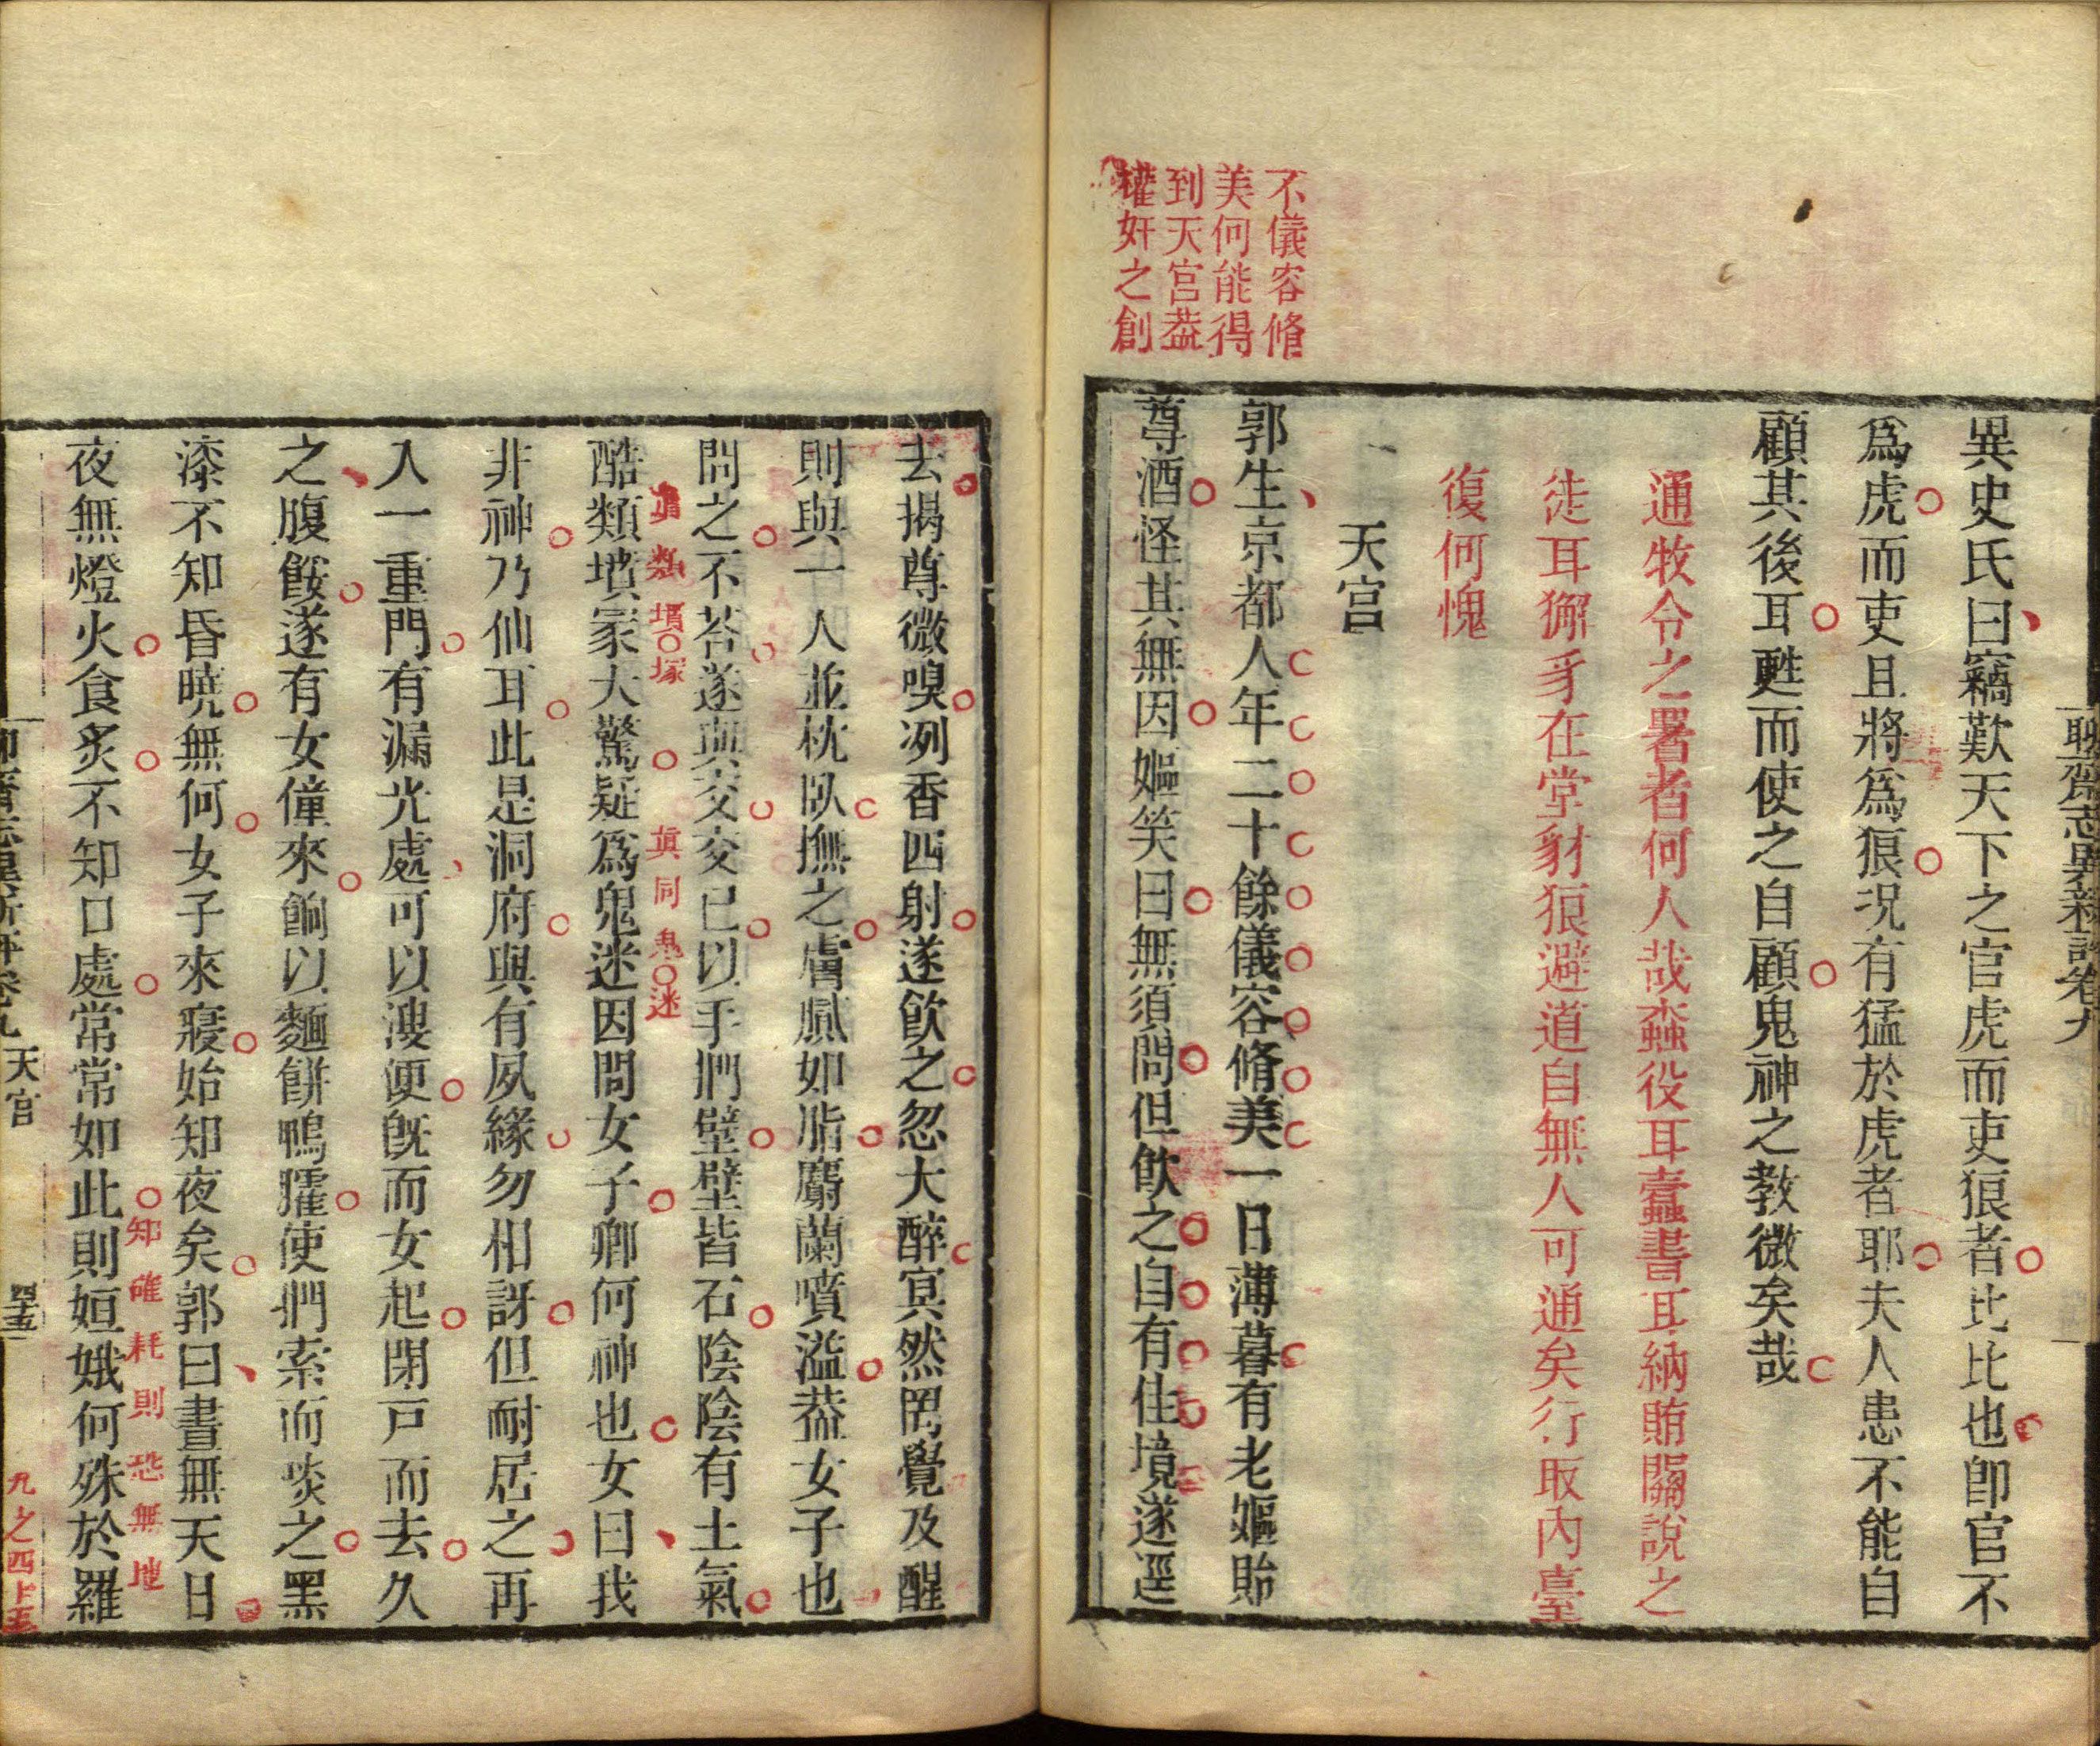 聊齋志異新評卷九
異史氏曰竊歎天下之官虎而吏狼者比比也卽官不
爲虎而吏且將爲狼況有猛於虎者耶夫人患不能自
顧其後耳甦而使之自顧鬼神之教微矣哉
通牧令之署者何人哉蠹役耳蠹書耳納賄關說之
徒耳獬豸在堂豺狼避道自無人可通矣行取內臺
復何愧
天宫
不儀容脩
美何能得
到天宫葢
權奸之創
郭生京都人年二十餘儀容脩美一日薄暮有老嫗貽
尊酒怪其無因嫗笑曰無須問但飲之自有佳境遂逕
去揭尊微嗅冽香四射遂飲之忽大醉冥然罔覺及醒
則與一人並枕臥撫之膚膩如脂麝蘭噴溢葢女子也
問之不荅遂與交交已以手捫壁壁皆石陰陰有土氣
酷類墳冢大驚疑爲鬼迷因問女子卿何神也女曰我
眞類墳塚
眞同鬼迷
非神乃仙耳此是洞府與有夙緣勿相訝但耐居之再
入一重門有漏光處可以溲便旣而女起閉戸而去久
之腹餒遂有女僮來餉以麵餅鴨臛使捫索而啖之黑
漆不知昏曉無何女子來寢始知夜矣郭曰晝無天日
夜無燈火食炙不知口處常常如此則姮娥何殊於羅
知確耗則恐無地
聊齋志異新評卷九 天宫 四十五
九之四十五